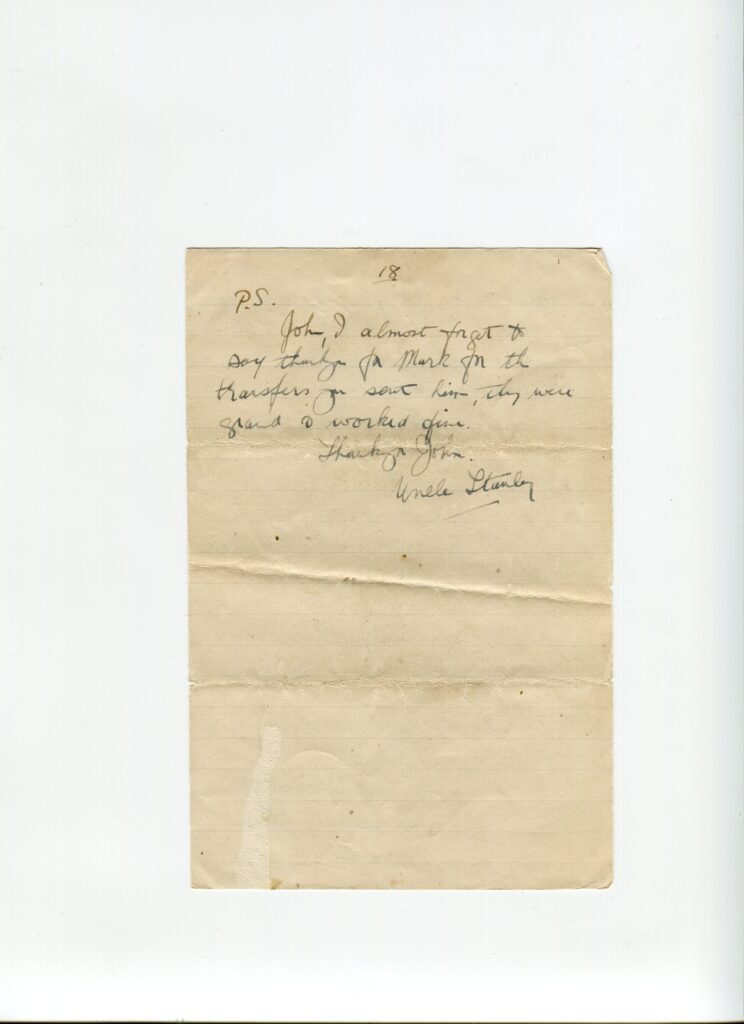 18
P.S.
John, I almost forgot to
say thankyou for Mark for the
transfers you sent him, they were
grand & worked fine.
Thankyou John.
Uncle Stanley